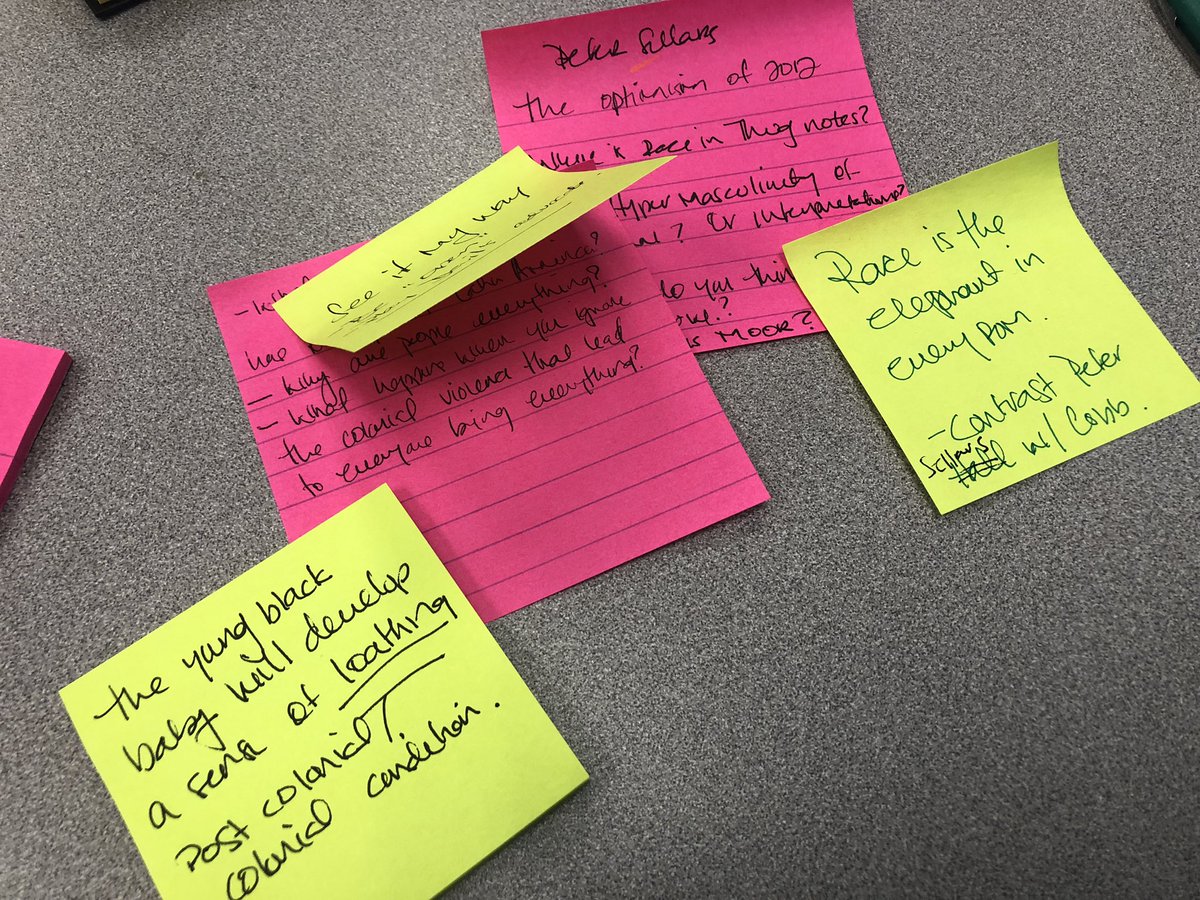 Peter Sellars
the optimism of 2012
Where is Race in Thiog notes?
Hyper masculinity of
? Or interpretations?
do you thin
MOOR?
See it my way
Latin America?
has
- Why are people everything?
- What happens when you ignore
the colonial violence that lead
to everyone being everything?
Race is the
elephant in
every room.
- Contrast Peter
Sellars w/ Cobb.
the young black
baby will develop
a sense of loathing
post colonial T.
colonial condition.